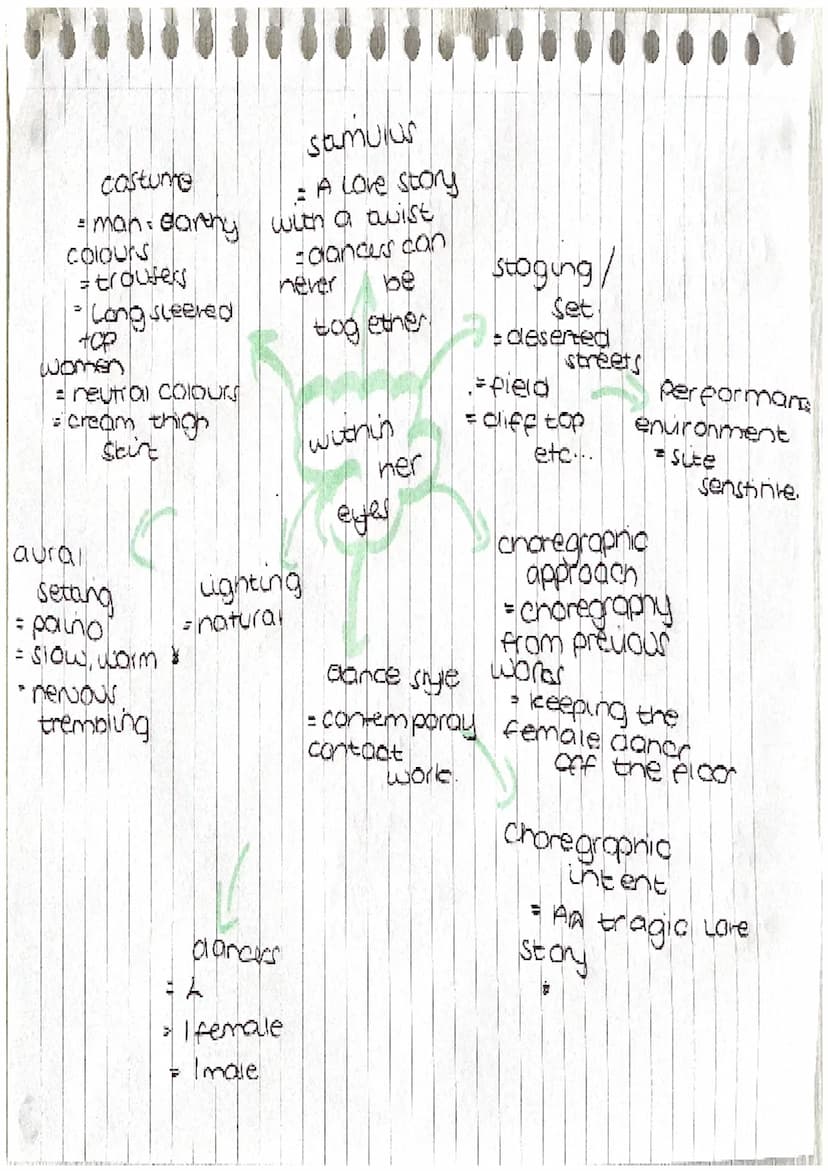 stimulus
= A love story
with a twist
= dancers can
never be
together.
costume
= man: earthy
colours
= trousers
= Long sleeved
top
women
= neutral colours
= cream thigh
skirt
staging /
set
= deserted
streets
= field
= cliff top
etc...
performans
environment
= site
senstinve.
within
her
eyes
aural
setting
= paino
= slow, warm
= nervous
trembling
Lighting
= natural
dance style
= contemporay
contact
work.
choregraphic
approach
= choregraphy
from previous
works
= keeping the
female dancr
off the floor
choregraphic
intent
= A tragic love
story
dancers
= 2
= 1 female
= 1 male